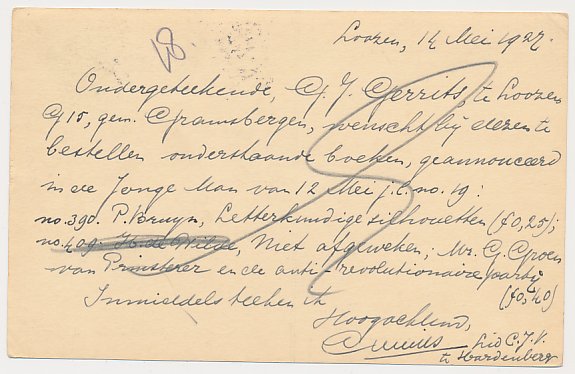 18.
Loozen, 14 Mei 1927.
Ondergeteekende, G. J. Gerrits, te Loozen
G 15, gem. Gramsbergen, wenscht bij dezen te
bestellen onderstaande boeken, geannonceerd
in de Jonge Man van 12 Mei j.l. no. 19:
no. 390. P. Bruyn, Letterkundige silhouetten (f0,25);
no. 409. H. de Wilde, Niet afgeweken; Mr. G. Groen
van Prinsterer en de anti-revolutionaire partij
(f0,40)
Inmiddels teeken ik
Hoogachtend,
Lid C.J.V.
te Hardenberg